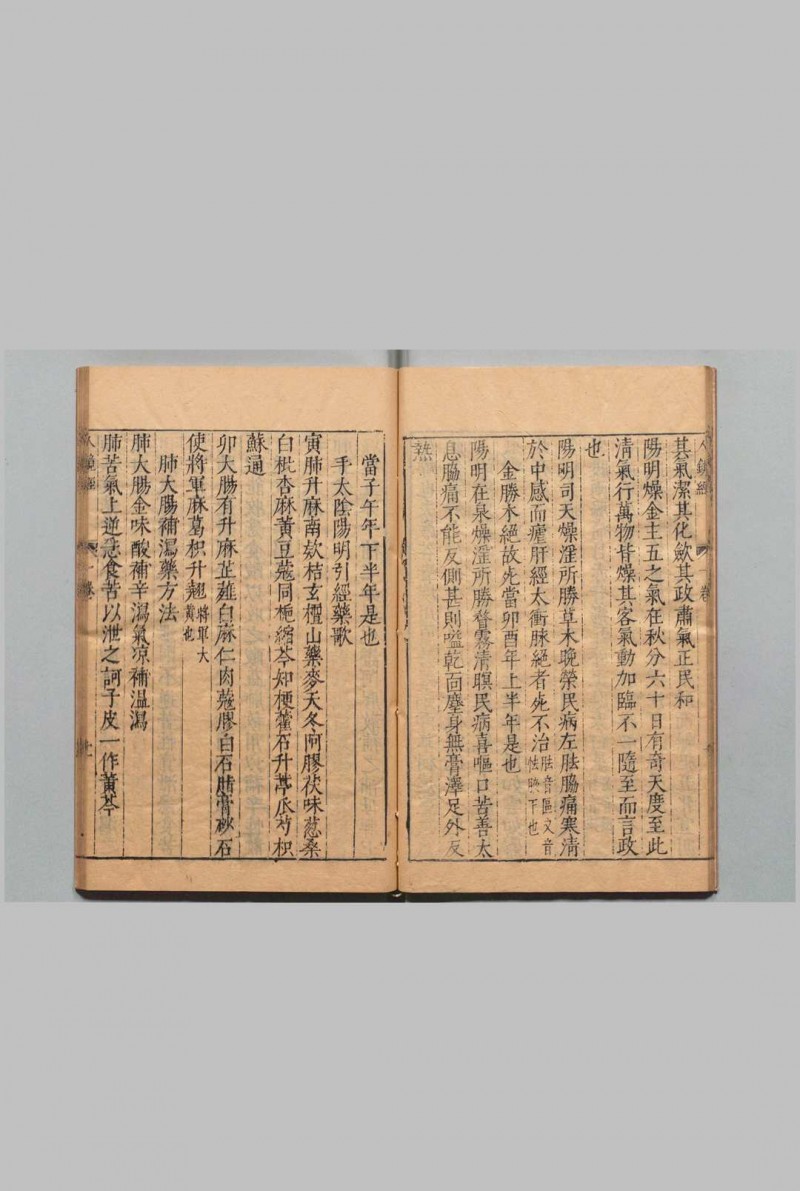 其氣潔其化斂其政肅氣正民和
陽明燥金主五之氣在秋分六十日有奇天度至此
清氣行萬物皆燥其客氣動加臨不一隨至而言政
也
陽明司天燥淫所勝草木晚榮民病左胠脇痛寒清
於中感而瘧肝經太衝脉絕者死不治胠音區又音怯腋下也
金勝木絕故死當卯酉年上半年是也
陽明在泉燥淫所勝霿霧清瞑民病喜嘔口苦善太
息脇痛不能反側甚則嗌乾面塵身無膏澤足外反
熱
人鏡經
一卷
當子午年下半年是也
手太陰陽明引經藥歌
寅肺升麻南欬桔玄檀山藥麥天冬阿膠茯味葱桑
白枇杏麻黃豆蔻同梔縮芩知梗藿石升葶瓜芍枳
蘇通
卯大腸有升麻芷薤白麻仁肉蔻膠白石脂膏秘石
使將軍麻葛枳升翹將軍大黃也
肺大腸補瀉藥方法
肺大腸金味酸補辛瀉氣凉補温瀉
肺苦氣上逆急食苦以泄之訶子皮一作黃芩
人鏡經
一卷
十